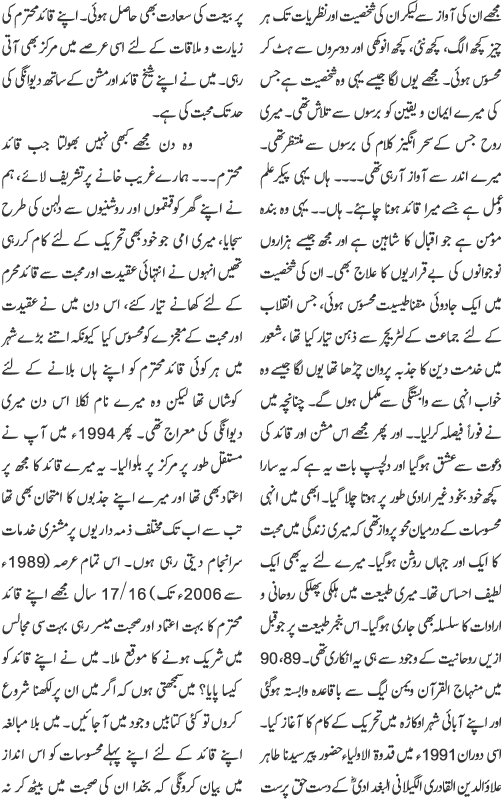 مجھے ان کی آواز سے لیکر ان کی شخصیت اور نظریات تک ہر
چیز کچھ الگ، کچھ نئی، کچھ انوکھی اور دوسروں سے ہٹ کر
محسوس ہوئی۔ مجھے یوں لگا جیسے یہی وہ شخصیت ہے جس
کی میرے ایمان و یقین کو برسوں سے تلاش تھی۔ میری
روح جس کے سحر انگیز کلام کی برسوں سے منتظر تھی۔
میرے اندر سے آواز آرہی تھی۔۔۔۔ ہاں یہی پیکر علم
و عمل ہے جسے میرا قائد ہونا چاہئے۔ ہاں۔۔ یہی وہ بندہ
مؤمن ہے جو اقبال کا شاہین ہے اور مجھ جیسے ہزاروں
نوجوانوں کی بے قراریوں کا علاج بھی۔ ان کی شخصیت
میں ایک جادوئی مقناطیسیت محسوس ہوئی، جس انقلاب
کے لئے جماعت کے لٹریچر سے ذہن تیار کیا تھا، شعور
میں خدمت دین کا جذبہ پروان چڑھا تھا یوں لگا جیسے وہ
خواب انہی سے وابستگی سے مکمل ہوں گے۔ چنانچہ میں
نے فوراً فیصلہ کرلیا۔۔ اور پھر مجھے اس مشن اور قائد کی
دعوت سے عشق ہوگیا اور دلچسپ بات یہ ہے کہ یہ سارا
کچھ خود بخود غیر ارادی طور پر ہوتا چلا گیا۔ ابھی میں انہی
محسوسات کے درمیان محو پرواز تھی کہ میری زندگی میں محبت
کا ایک اور جہاں روشن ہوگیا۔ میرے لئے یہ بھی ایک
لطیف احساس تھا۔ میری طبیعت میں ہلکی پھلکی روحانی و
ارادات کا سلسلہ بھی جاری ہوگیا۔ اس بنجر طبیعت پر جو قبل
ازیں روحانیت کے وجود سے ہی یہ انکاری تھی۔ 89، 90
میں منہاج القرآن ویمن لیگ سے باقاعدہ وابستہ ہوگئی
اور اپنے آبائی شہر اوکاڑہ میں تحریک کے کام کا آغاز کیا۔
اسی دوران 1991ء میں قدوۃ الاولیاء حضور پیر سیدنا طاہر
علاؤالدین القادری الگیلانی البغدادیؒ کے دست حق پرست
پر بیعت کی سعادت بھی حاصل ہوئی۔ اپنے قائد محترم کی
زیارت و ملاقات کے لئے اسی عرصے میں مرکز بھی آتی
رہی۔ میں نے اپنے شیخ قائد اور مشن کے ساتھ دیوانگی کی
حد تک محبت کی ہے۔
وہ دن مجھے کبھی نہیں بھولتا جب قائد
محترم۔۔۔ ہمارے غریب خانے پر تشریف لائے، ہم
نے اپنے گھر کو قمقموں اور روشنیوں سے دلہن کی طرح
سجایا، میری امی جو خود بھی تحریک کے لئے کام کررہی
تھیں انہوں نے انتہائی عقیدت اور محبت سے قائد محترم
کے لئے کھانے تیار کئے، اس دن میں نے عقیدت
اور محبت کے معجزے کو محسوس کیا کیونکہ اتنے بڑے شہر
میں ہر کوئی قائد محترم کو اپنے ہاں بلانے کے لئے
کوشاں تھا لیکن وہ میرے نام نکلا اس دن میری
دیوانگی کی معراج تھی۔ پھر 1994ء میں آپ نے
مستقل طور پر مرکز پر بلوالیا۔ یہ میرے قائد کا مجھ پر
اعتماد بھی تھا اور میرے اپنے جذبوں کا امتحان بھی تھا
تب سے اب تک مختلف ذمہ داریوں پر مشنری خدمات
سرانجام دیتی رہی ہوں۔ اس تمام عرصہ (1989ء
سے 2006ء تک) 16/17 سال مجھے اپنے قائد
محترم کا بہت اعتماد اور صحبت میسر رہی بہت سی مجالس
میں شریک ہونے کا موقع ملا۔ میں نے اپنے قائد کو
کیسا پایا؟ میں سمجھتی ہوں کہ اگر میں ان پر لکھنا شروع
کروں تو کئی کتابیں وجود میں آجائیں۔ میں بلا مبالغہ
اپنے قائد کے لئے اپنے پہلے محسوسات کو اس انداز
میں بیان کرونگی کہ بخدا ان کی صحبت میں بیٹھ کر نہ